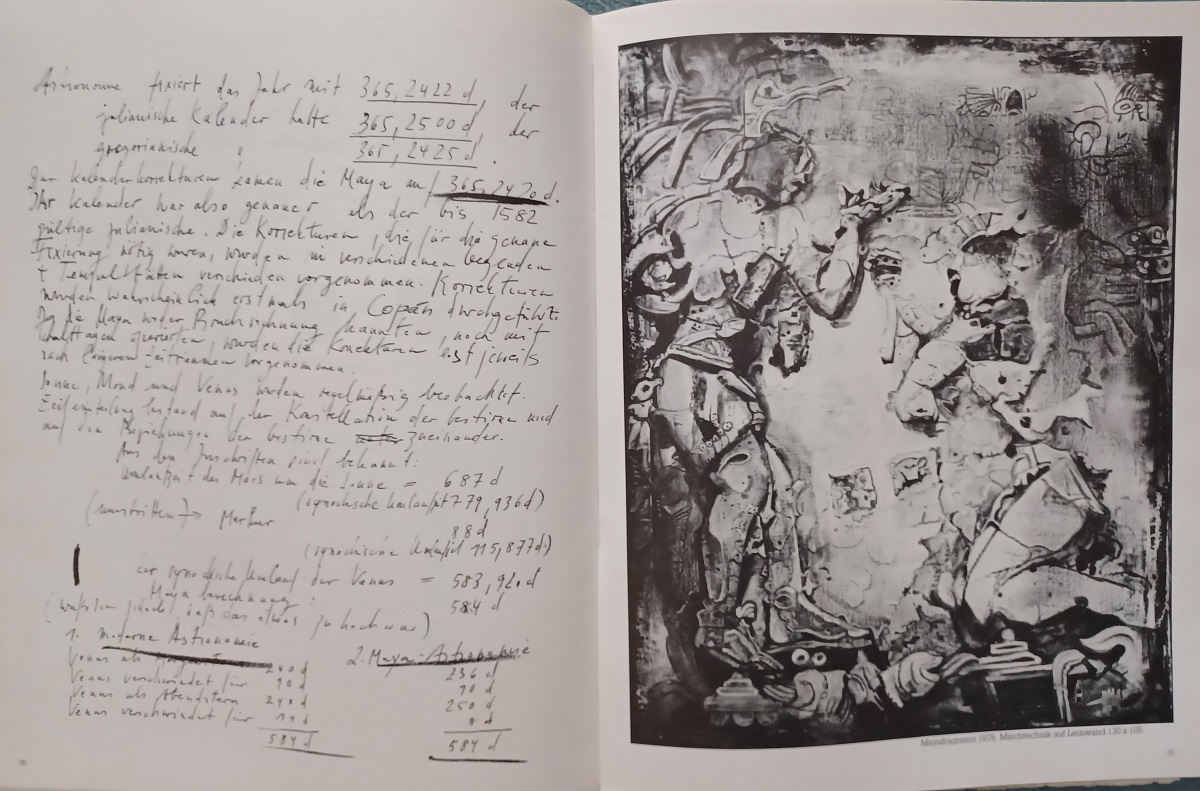 Astronomie fixiert das Jahr mit 365,2422 d, der
julianische Kalender hatte 365,2500 d, der
gregorianische " 365,2425 d.
Zur Kalenderkorrekturen kamen die Maya auf 365,2420 d.
Ihr Kalender war also genauer als der bis 1582
gültige julianische. Die Korrekturen, die für die genaue
Fixierung nötig waren, wurden in verschiedenen Gegenden
+ verschieden vorgenommen. Korrekturen
wurden wahrscheinlich erstmals in Copán durchgeführt.
Da die Maya weder Bruchrechnung kannten, noch mit
Schalttagen operierten, wurden die Korrekturen erst jeweils
nach längeren Zeiträumen vorgenommen.
Sonne, Mond und Venus wurden regelmäßig beobachtet.
Zeiteinteilung bestand auf der Konstellation der Gestirne und
auf den Beziehungen der Gestirne zueinander.
Aus den Inschriften sind bekannt:
Umlaufzeit des Mars um die Sonne = 687 d
(synodische Umlaufzeit 779,936 d)
(umstritten) → Merkur 88 d
(synodische Umlaufzeit 115,877 d)
der synodische Umlauf der Venus = 583,920 d
Maya berechnung: 584 d
(wußten jedoch daß das etwas zu hoch war)
1. moderne Astronomie
Venus als 240 d
Venus verschwindet für 90 d
Venus als Abendstern 240 d
Venus verschwindet für 14 d
584 d
2. Maya-Astronomie
236 d
90 d
250 d
8 d
584 d
30
Mayafragment 1978, Mischtechnik auf Leinwand 130 x 105
31